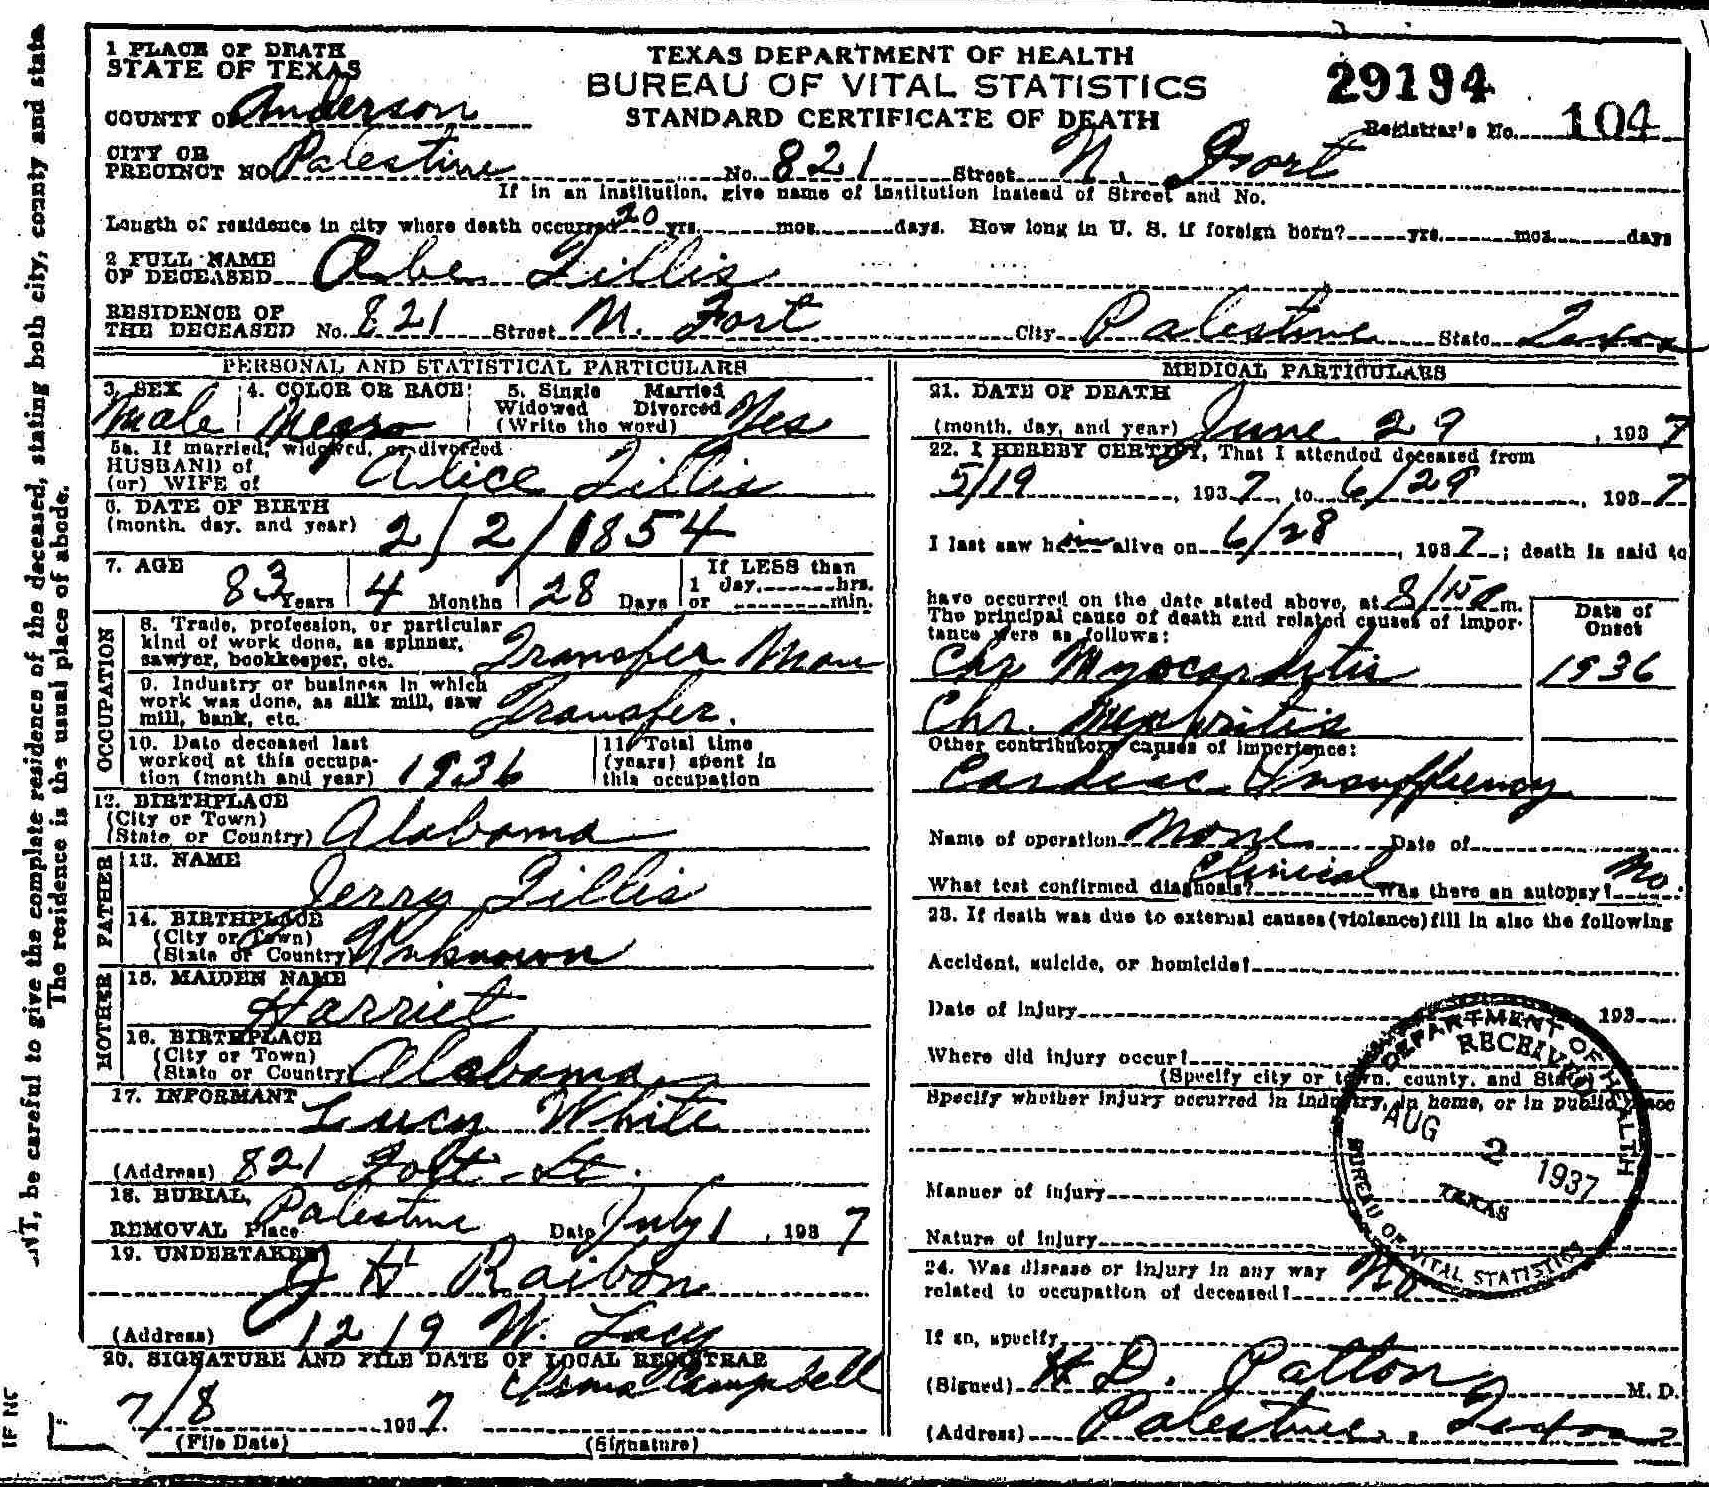 1 PLACE OF DEATH
STATE OF TEXAS
COUNTY OF Anderson
CITY OR
PRECINCT NO. Palestine No. 821 Street N. Fort
TEXAS DEPARTMENT OF HEALTH
BUREAU OF VITAL STATISTICS
STANDARD CERTIFICATE OF DEATH
29194
Registrar's No. 104
If in an institution, give name of institution instead of Street and No.
Length of residence in city where death occurred 20 yrs. mos. days. How long in U. S. if foreign born? yrs. mos. days
2 FULL NAME
OF DECEASED Abe Tillis
RESIDENCE OF
THE DECEASED No. 821 Street N. Fort City Palestine State Texas
PERSONAL AND STATISTICAL PARTICULARS
3. SEX
Male
4. COLOR OR RACE
Negro
5. Single Married
Widowed Divorced
(Write the word) Yes
5a. If married, widowed, or divorced
HUSBAND of
(or) WIFE of Alice Tillis
6. DATE OF BIRTH
(month, day, and year) 2/2/1854
7. AGE
83 Years 4 Months 28 Days
If LESS than
1 day, hrs.
or min.
OCCUPATION
8. Trade, profession, or particular
kind of work done, as spinner,
sawyer, bookkeeper, etc. Transfer Man
9. Industry or business in which
work was done, as silk mill, saw
mill, bank, etc. Transfer.
10. Date deceased last
worked at this occupa-
tion (month and year) 1936
11. Total time
(years) spent in
this occupation
12. BIRTHPLACE
(City or Town)
(State or Country) Alabama
FATHER
13. NAME
Jerry Tillis
14. BIRTHPLACE
(City or Town)
(State or Country) Unknown
MOTHER
15. MAIDEN NAME
Harriet
16. BIRTHPLACE
(City or Town)
(State or Country) Alabama
17. INFORMANT Lucy White
(Address) 821 Fort St.
18. BURIAL,
REMOVAL Place Palestine Date July 1, 1937
19. UNDERTAKER
J H Raibon
(Address) 1219 W. Lacy
20. SIGNATURE AND FILE DATE OF LOCAL REGISTRAR
7/8 1937. Campbell
(File Date) (Signature)
MEDICAL PARTICULARS
21. DATE OF DEATH
(month, day, and year) June 29, 1937
22. I HEREBY CERTIFY, That I attended deceased from
5/19, 1937, to 6/29, 1937
I last saw him alive on 6/28, 1937; death is said to
have occurred on the date stated above, at 8/15 a m.
The principal cause of death and related causes of impor-
tance were as follows:
Date of
Onset
Chr Myocarditis 1936
Chr. Nephritis
Other contributory causes of importance:
Cardiac Insuffiency
Name of operation None Date of
What test confirmed diagnosis? Clinical Was there an autopsy? No.
23. If death was due to external causes (violence) fill in also the following
Accident, suicide, or homicide?
Date of injury 193
Where did injury occur?
(Specify city or town, county, and State)
Specify whether injury occurred in industry, in home, or in public place
Manner of injury
Nature of injury
DEPARTMENT OF HEALTH
RECEIVED
AUG 2 1937
TEXAS
BUREAU OF VITAL STATISTICS
24. Was disease or injury in any way
related to occupation of deceased? No
If so, specify
(Signed) H D. Patton M. D.
(Address) Palestine, Texas
be careful to give the complete residence of the deceased, stating both city, county and state
The residence is the usual place of abode.